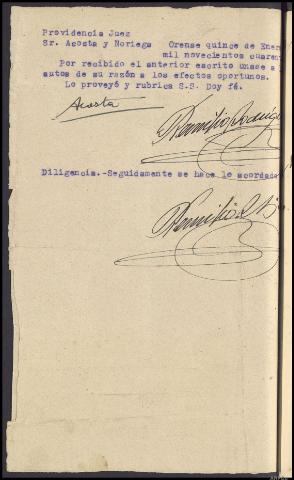 Providencia Juez
Sr. Acosta y Noriega Orense quince de Ener
mil novecientos cuaren
Por recibido el anterior escrito únase a
autos de su razón a los efectos oportunos.
Lo proveyó y rubrica S.S. Doy fé.
Acosta
Remigio Rodrígu
Diligencia.-Seguidamente se hace lo acordado